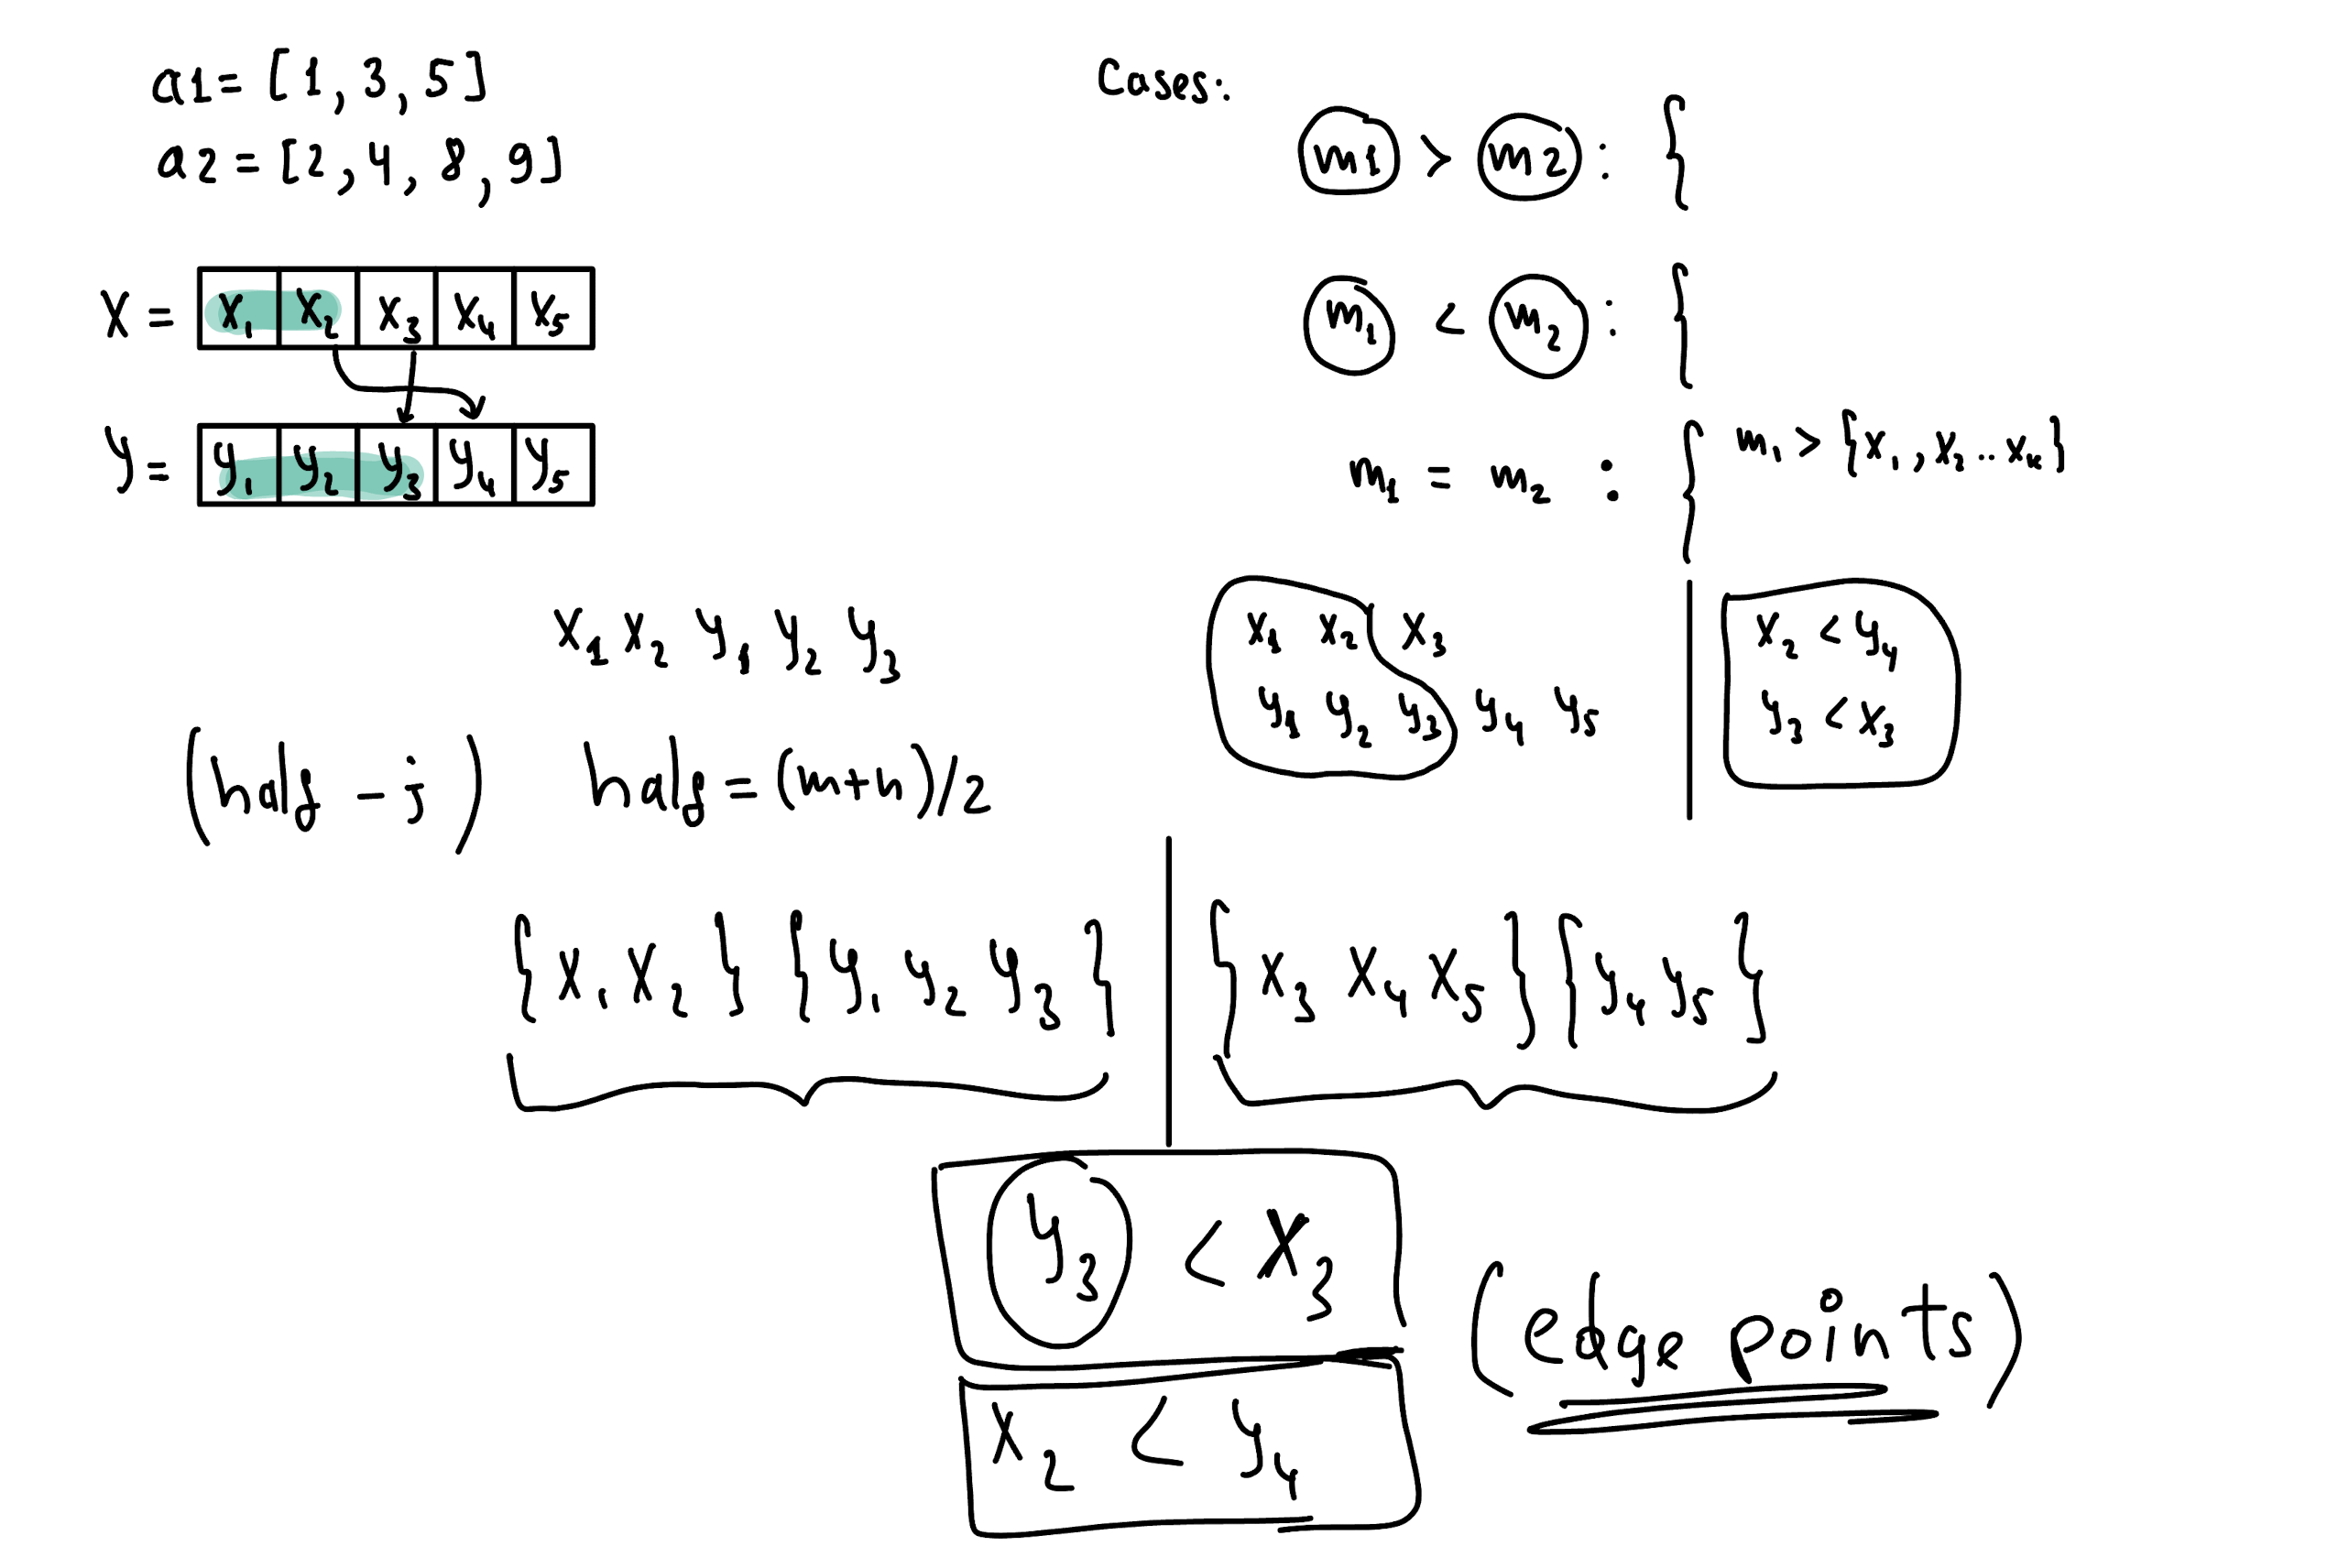 a1 = [1, 3, 5]
a2 = [2, 4, 8, 9]
X = x₁ x₂ x₃ x₄ x₅
Y = y₁ y₂ y₃ y₄ y₅
Cases:
m1 > m2 : {
m₁ < m₂ : {
m₁ = m₂ : { m₁ > {x₁, x₂ .. xₖ}
x₁ x₂ y₁ y₂ y₃
x₁ x₂ x₃
y₁ y₂ y₃ y₄ y₅
x₂ < y₄
y₃ < x₃
(half - j) half = (m+n)//2
{x₁ x₂} {y₁ y₂ y₃} | {x₃ x₄ x₅} {y₄ y₅}
y₃ < x₃
x₂ < y₄
(edge points)